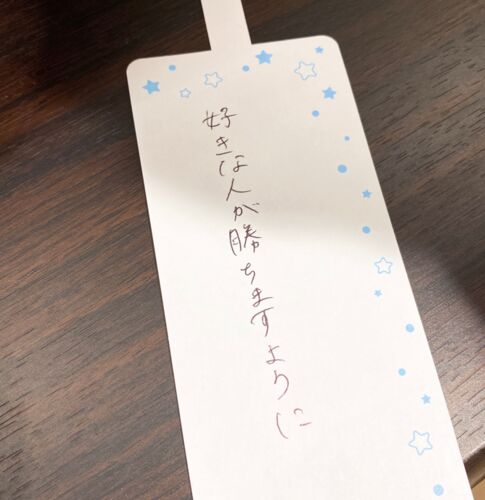 好きな人が勝ちますように